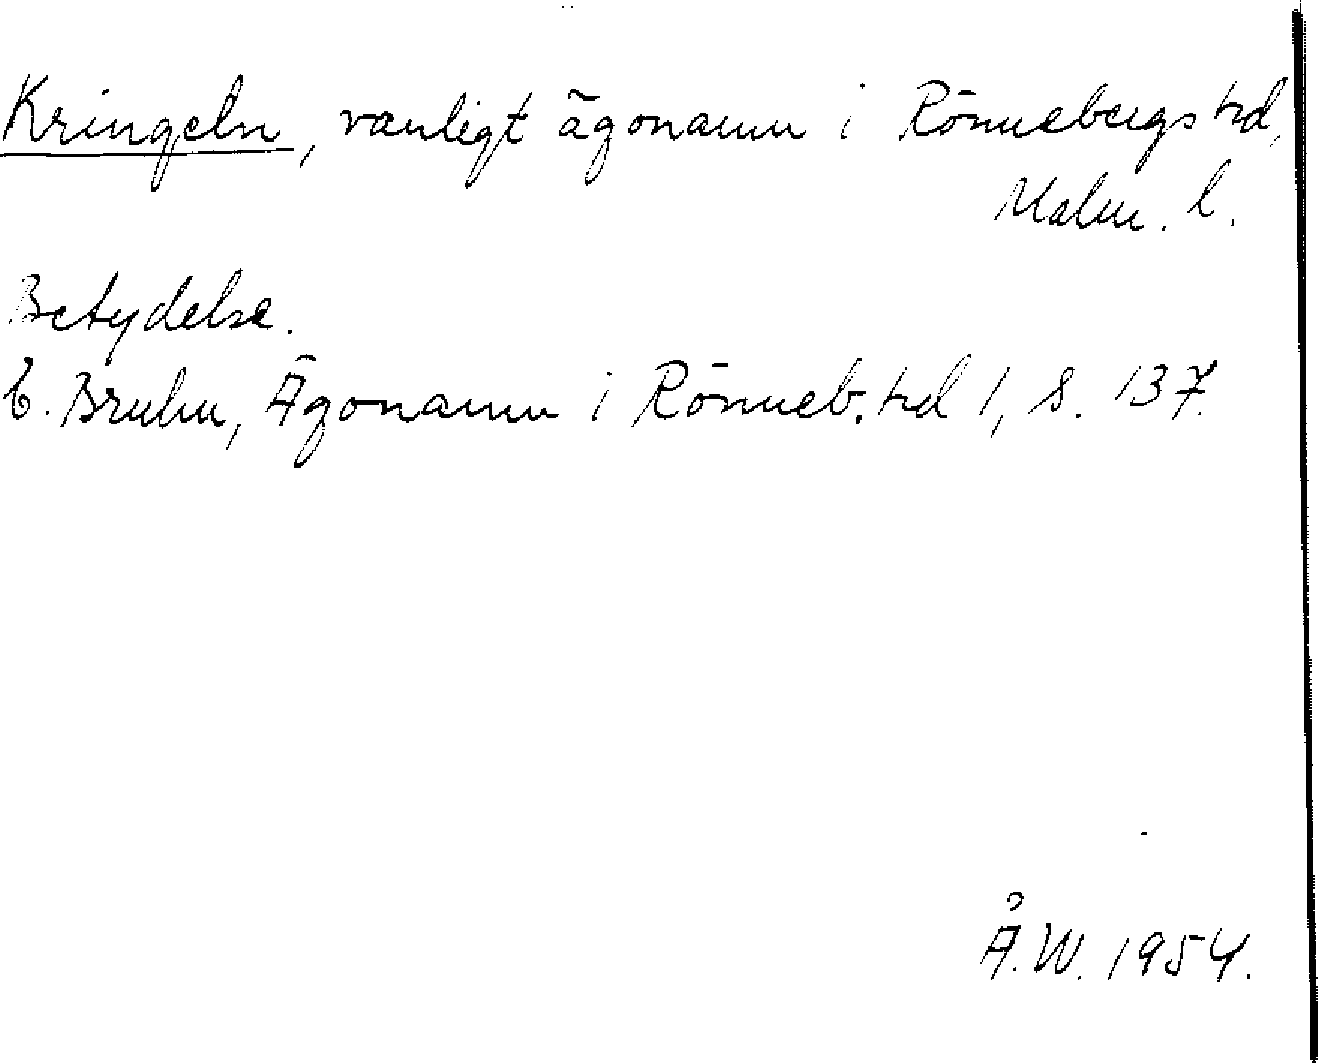 Kringeln, vanligt ägonamn i Rönnebergs hd,
Malm. l.
Betydelse.
E. Bruhn, Ägonamn i Rönneb. hd 1, s. 137.
Å.W. 1954.